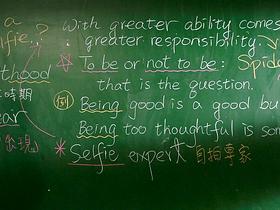 a
With greater ability comes
lfie.?
greater responsibility.
☆ To be or not to be: Spid
thood
that is the question.
時期
(例) Being good is a good bu
ear
Being too thoughtful is so
* Selfie expert 自拍專家